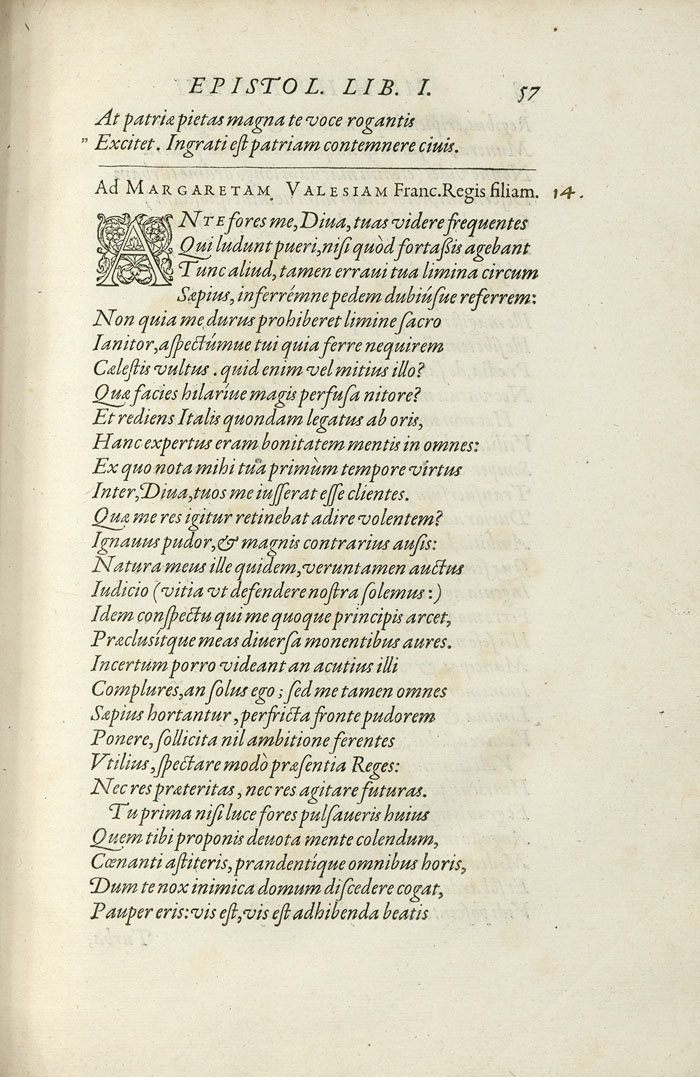 EPISTOL. LIB. I. 57
At patriæ pietas magna te voce rogantis
" Excitet. Ingrati est patriam contemnere ciuis.
Ad MARGARETAM VALESIAM Franc. Regis filiam. 14.
ANTE fores me, Diua, tuas videre frequentes
Qui ludunt pueri, nisi quòd fortassis agebant
Tunc aliud, tamen erraui tua limina circum
Sæpius, inferrémne pedem dubiúsue referrem:
Non quia me durus prohiberet limine sacro
Ianitor, aspectúmue tui quia ferre nequirem
Cælestis vultus. quid enim vel mitius illo?
Quæ facies hilariue magis perfusa nitore?
Et rediens Italis quondam legatus ab oris,
Hanc expertus eram bonitatem mentis in omnes:
Ex quo nota mihi tua primùm tempore virtus
Inter, Diua, tuos me iusserat esse clientes.
Quæ me res igitur retinebat adire volentem?
Ignauus pudor, & magnis contrarius ausis:
Natura meus ille quidem, veruntamen auctus
Iudicio (vitia vt defendere nostra solemus:)
Idem conspectu qui me quoque principis arcet,
Præclusitque meas diuersa monentibus aures.
Incertum porro videant an acutius illi
Complures, an solus ego; sed me tamen omnes
Sæpius hortantur, perfricta fronte pudorem
Ponere, sollicita nil ambitione ferentes
Vtilius, spectare modò præsentia Reges:
Nec res præteritas, nec res agitare futuras.
Tu prima nisi luce fores pulsaueris huius
Quem tibi proponis deuota mente colendum,
Cœnanti astiteris, prandentíque omnibus horis,
Dum te nox inimica domum discedere cogat,
Pauper eris: vis est, vis est adhibenda beatis